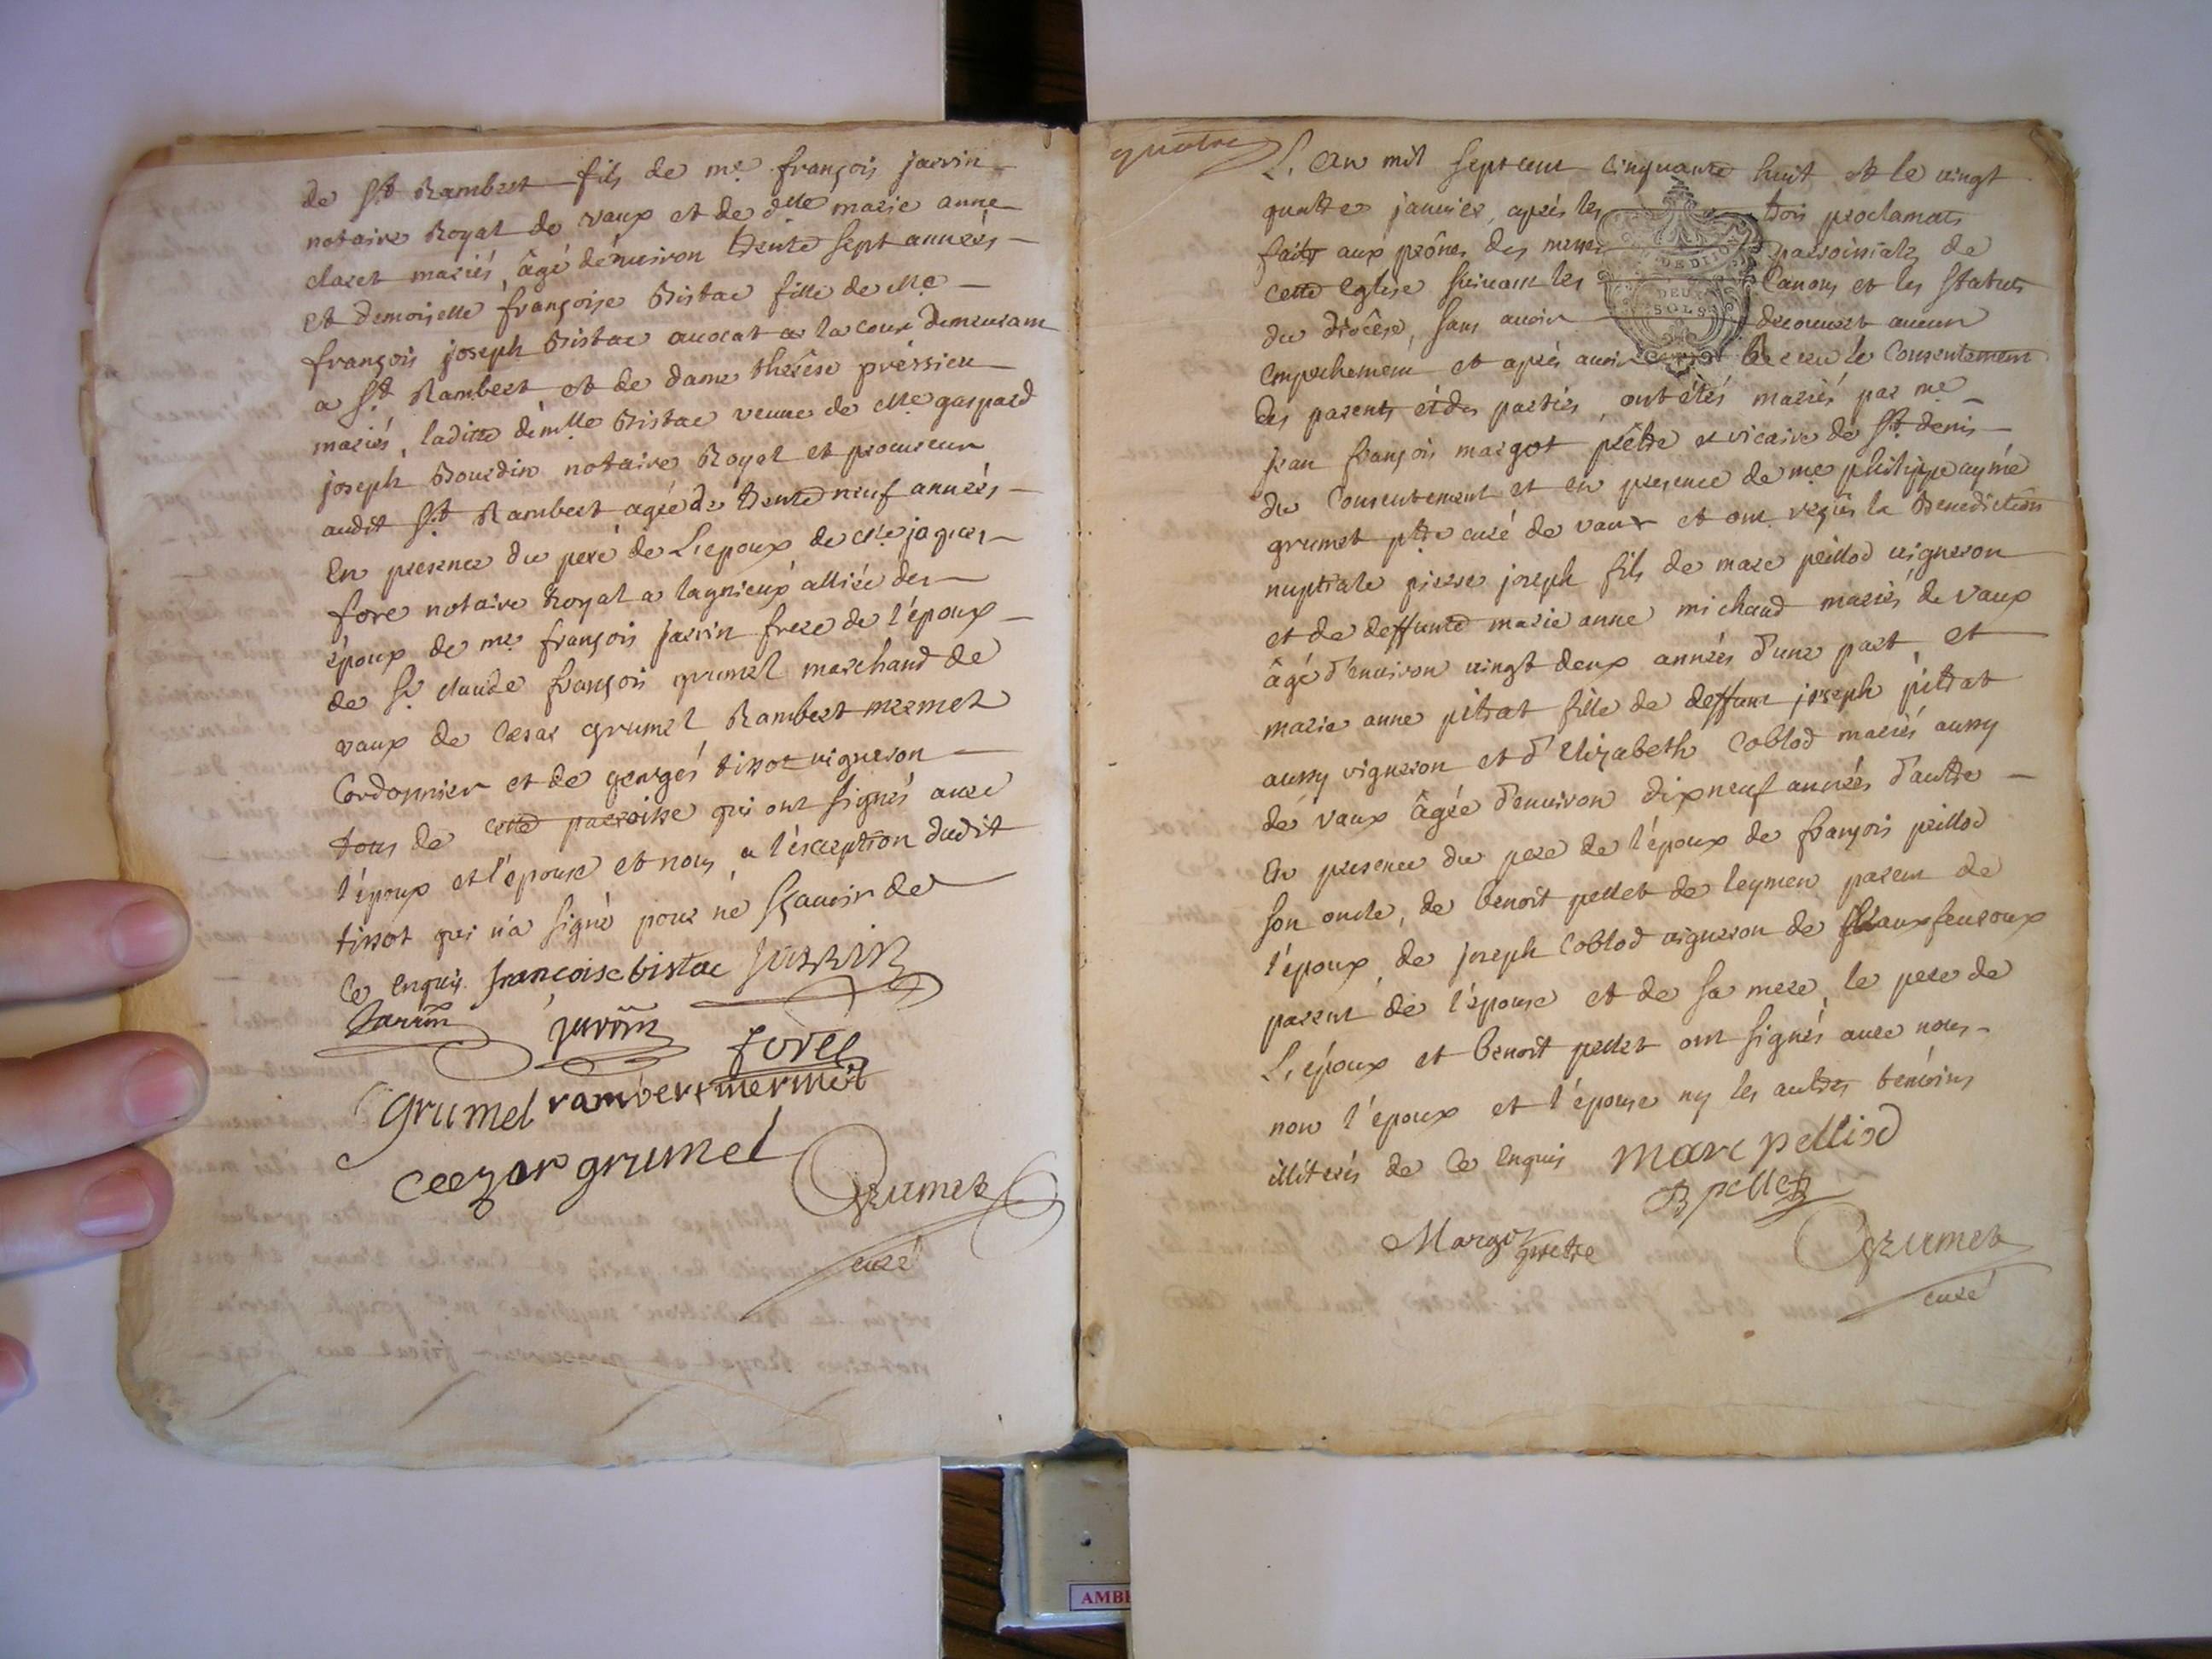 de St Rambert fils de me françois jarrin
notaire Royal de vaux et de dlle marie anne
claret mariés, âgé d'environ trente sept années
et demoiselle françoise Bistac fille de Me
françois joseph Bistac avocat a la cour demeurant
a St Rambert et de dame thérèse préssieu
mariés, laditte demlle Bistac veuve de Me gaspard
joseph Bourdin notaire Royal et procureur
audit St Rambert agée de trente neuf années
En presence du pere de L'epoux de Me jaques
fore notaire Royal a lagnieux alliée des
époux de me françois jarrin frere de l'époux
de Sr claude françois grumel marchand de
vaux de Cesar grumel Rambert mermet
Cordonnier et de georges tissot vigneron
tous de cette parroisse qui ont signés avec
l'époux et l'épouse et nous a l'exception dudit
tissot qui n'a signé pour ne sçavoir de
Ce enquis. francoise bistac jarrin
Jarrin jarrin forel
Grumel rambert mermet
Ceezar grumel Grumet
curé
quatre
L'an mil sept cent Cinquante huit et le vingt
quatre janvier, après les trois proclamats
faits aux prônes des messes parroissiales de
cette Eglise suivant les Canons et les Statuts
du Diocèse, sans avoir decouvert aucun
Empechement et après avoir le consentement
des parents et des parties, ont étés mariés par me
jean françois margot prêtre et vicaire de St denis
du Consentement et en presence de me philippe aymé
grumet ptre curé de vaux et ont reçûs la Benediction
nuptiale pierre joseph fils de marc peillod vigneron
et de deffunte marie anne michaud mariés de vaux
âgé d'environ vingt deux années d'une part, et
marie anne pitrat fille de deffunt joseph pitrat
aussy vigneron et d'Elizabeth Coblod mariés aussy
de vaux âgée d'environ dixneuf années d'autre
En presence du pere de l'époux de françois peillod
son oncle, de benoit pellet de leymen parent de
l'époux, de joseph Coblod vigneron de vauxfevroux
parent de l'épouse et de sa mere, le pere de
L'époux et benoit pellet ont signés avec nous
non l'époux et l'épouse ny les autres temoins
illiterés de Ce Enquis marc pelliod
B pellet
Margot prêtre Grumet
curé
DEUX
SOLS
AMB